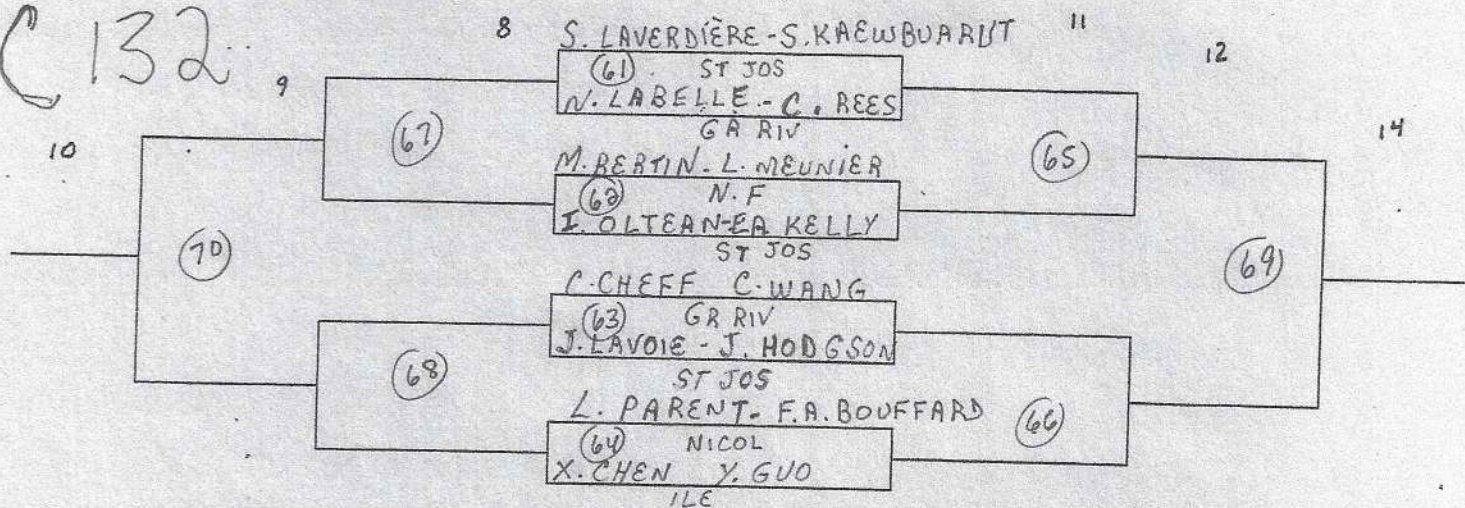 C 132
8
S. LAVERDIÈRE - S. KAEWBUARUT
11
12
9
61 ST JOS
N. LABELLE - C. REES
GR RIV
67
14
10
M. BERTIN - L. MEUNIER
65
62 N.F
I. OLTEAN-EA KELLY
ST JOS
70
69
C. CHEFF C. WANG
63 GR RIV
J. LAVOIE - J. HODGSON
ST JOS
68
L. PARENT - F.A. BOUFFARD
66
64 NICOL
X. CHEN Y. GUO
ILE